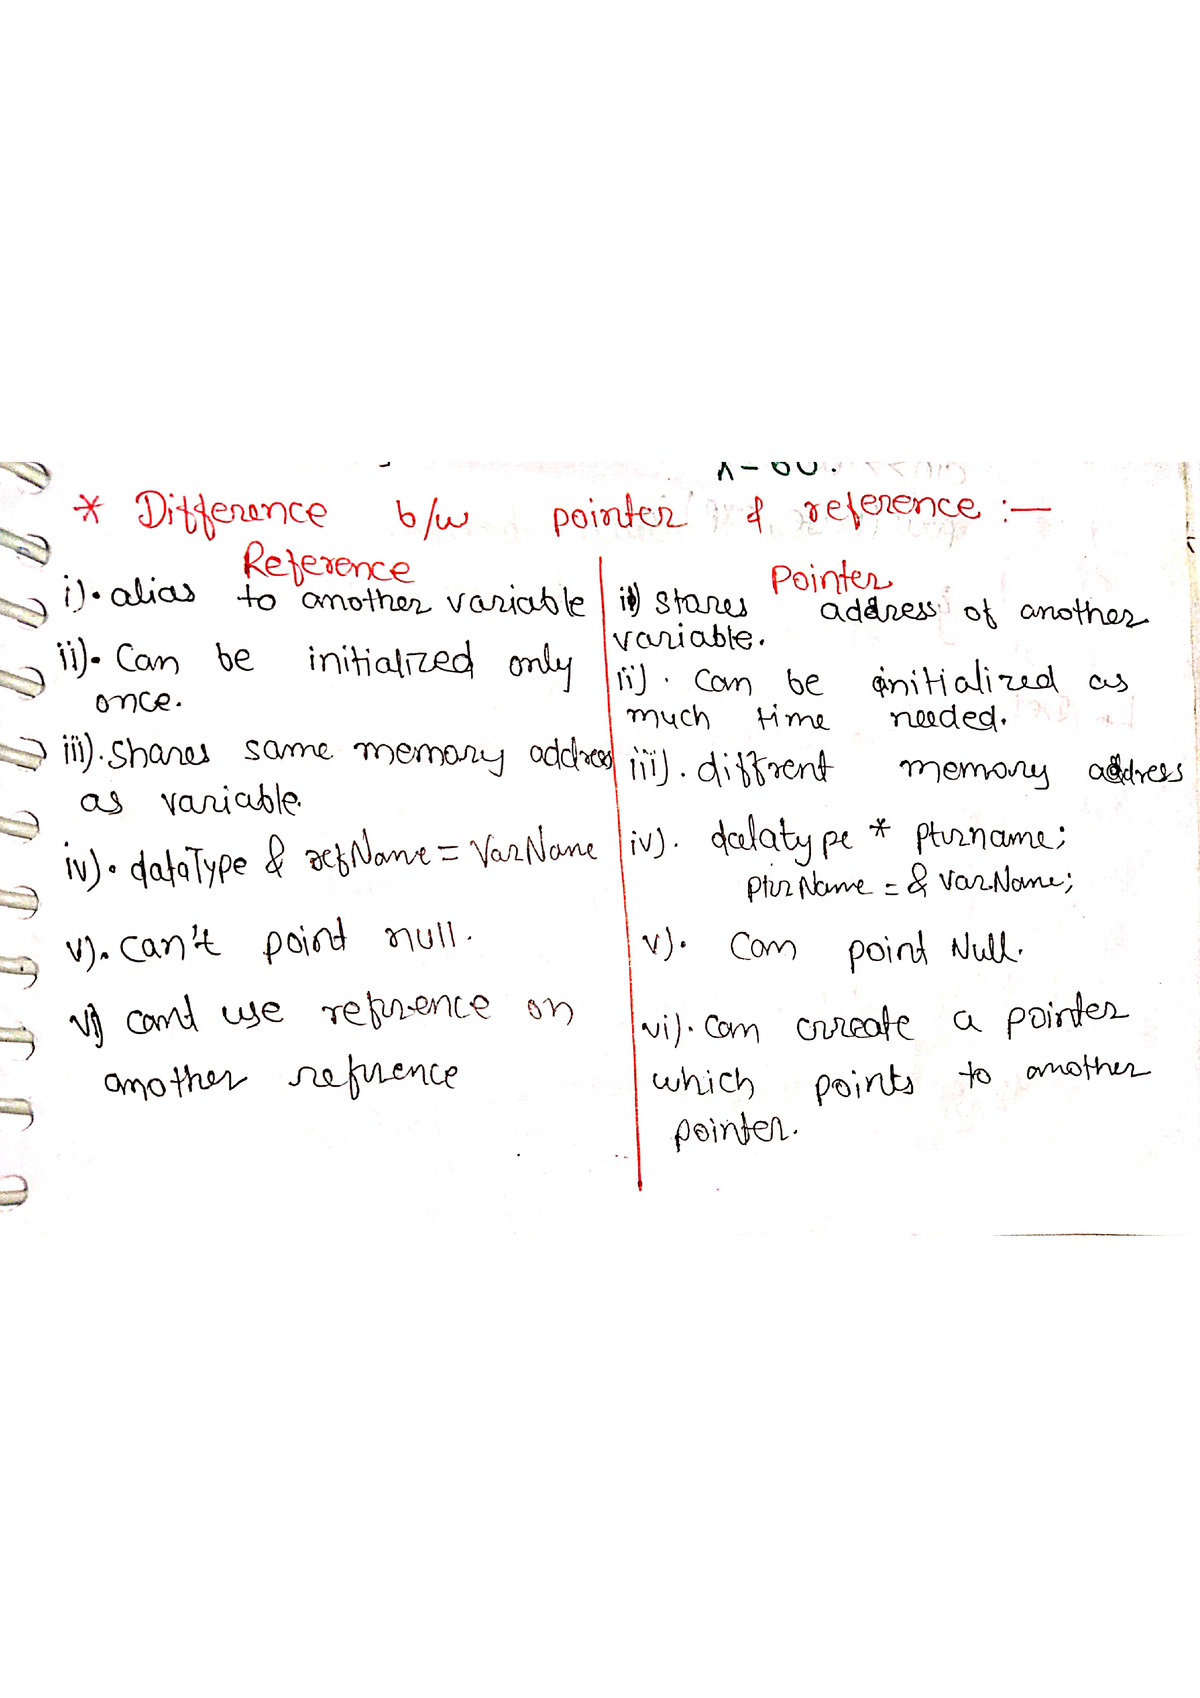 * Difference b/w pointer & reference :-
Reference
i). alias to another variable
ii). Can be initialized only
once.
iii). Shares same memory address
as variable.
iv). dataType & refName = VarName
v). can't point null.
vi) can't use refrence on
another refrence
Pointer
i) stores address of another
variable.
ii). Can be initialized as
much time needed.
iii). diffrent memory address
iv). datatype * ptrname;
ptrName = & VarName;
v). Can point Null.
vi). Can crreate a pointer
which points to another
pointer.